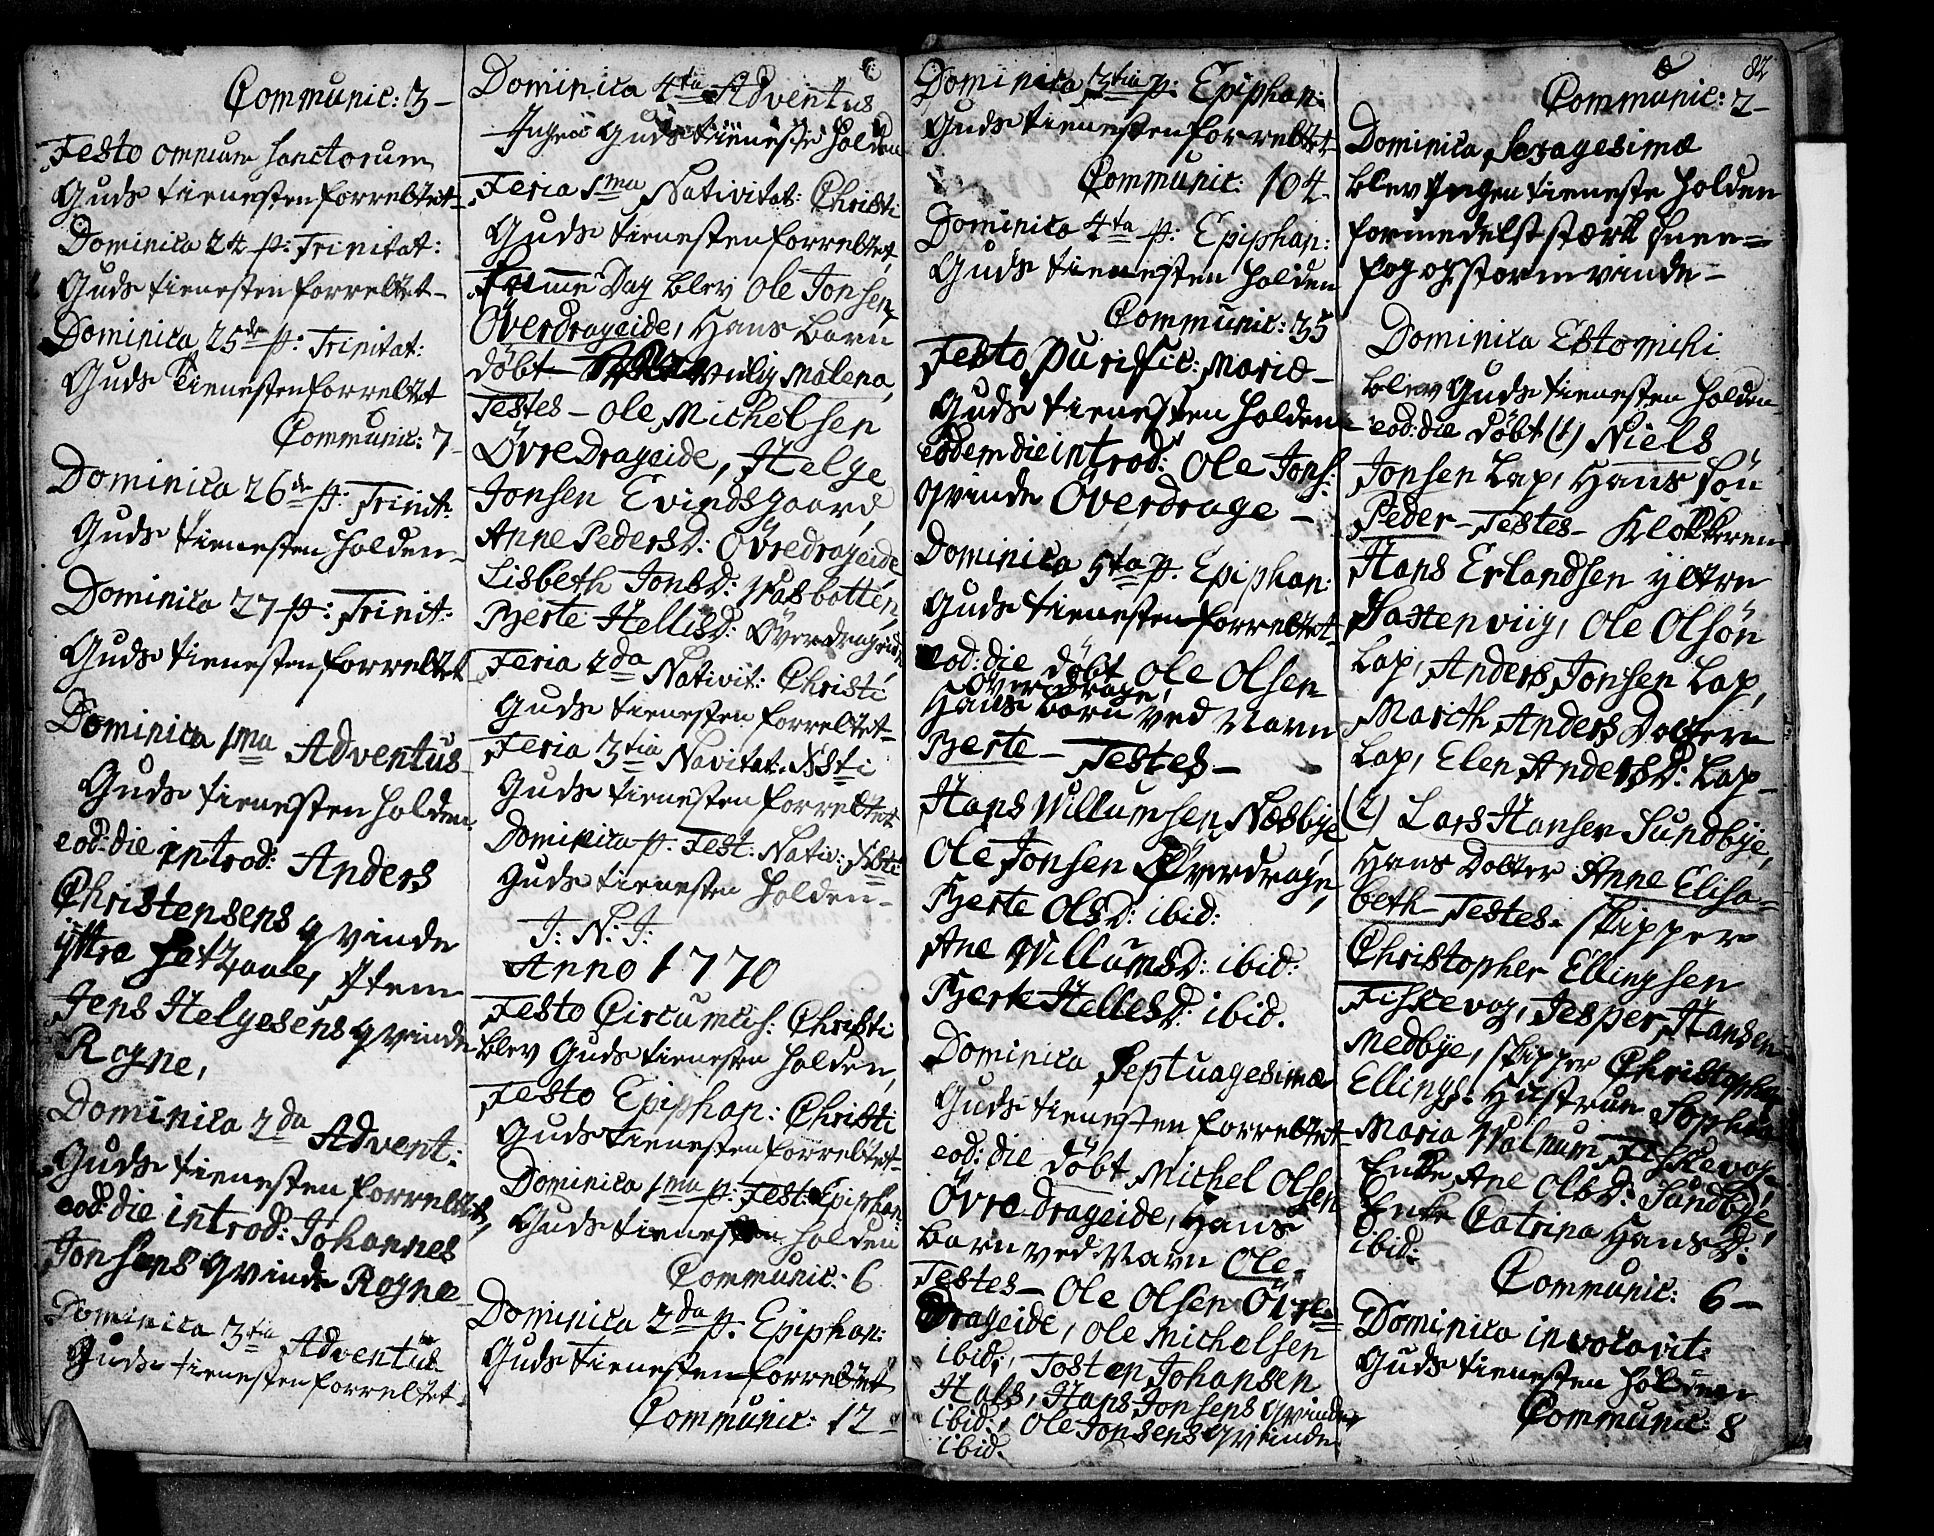 Communic: 3 -
Festo omnium Sanctorum
Guds tienesten forrettet -
Dominica 24 p: Trinitat:
Guds tienesten forrettet -
Dominica 25de p: Trinitat:
Guds Tienesten forrettet
Communic: 7 -
Dominica 26de p: Trinit:
Guds tienesten holden -
Dominica 27 p: Trinit:
Guds tienesten forrettet
Dominica 1ma Adventus
Guds tienesten holden.
eod: die introd: Anders
Christensens qvinde
ÿttre Item
Jens Helgesens qvinde
Rogne,
Dominica 2da Advent:
Guds tienesten forrettet,
eod: die introd: Johannes
Jonsens qvinde Rogne -
Dominica 3tia Adventus
Guds tienesten forrettet.
Dominica 4ta Adventus
Ingen Guds tieneste holden
Feria 1ma Nativitat: Christi
Guds tienesten forrettet,
Samme Dag blev Ole Jonsen
Överdrageide, Hans barn
döbt Malena,
Testes - Ole Michelsen
ÖvreDrageide, Helge
Jonsen Evindsgaard,
Anne PedersD: Övredrageide
Lisbeth JonsD: Vasbotten,
Berte HellisD: Överdrageide
Feria 2da Nativit: Christi
Guds tienesten forrettet -
Feria 3tia Navitat: Xsti
Guds tienesten forrettet
Dominica p. Fest: Nativ: Xsti
Guds tienesten holden -
J: N: J:
Anno 1770
Festo Circumcis: Christi
blev Guds tienesten holden,
Festo Epiphan: Christi
Guds tienesten forrettet -
Dominica 1ma p: Fest: Epiphan:
Guds tienesten holden
Communic: 6
Dominica 2da p. Epiphan:
Guds tienesten forrettet
Communic: 12 -
Dominica 3tia p: Epiphan:
Guds tienesten forrettet -
Communic: 104.
Dominica 4ta p. Epiphan:
Guds tienesten holden
Communic: 35
Festo Purific: Mariæ -
Guds tienesten holden -
eodem die introd: Ole Jons:
qvinde Överdrage -
Dominica 5ta p. Epiphan:
Guds tienesten forrettet -
eod: die döbt Ole Olsen
Överdrage,
Hans barn ved Navn
Berte - Testes -
Hans Willumsen Næsbÿe
Ole Jonsen Överdrage,
Berte OlsD: ibid:
Ane WillumsD: ibid:
Berte HellesD: ibid.
Dominica Septuagesima
Guds tienesten forrettet -
eod: die döbt Michel Olsen
Övre Drageide, Hans
barn ved Navn Ole.
Testes - Ole Olsen Övre
Drageide, Ole Michelsen
ibid:, Tosten Johansen
Hals, Hans Jonsens qvinde
ibid:, Ole Jonsens qvinde
ibid.
82
Communic: 2 -
Dominica Sexagesimæ
blev Ingen tieneste holden
formedelst stærk Snee=
fog og storm vinde -
Dominica Estomihi
blev Guds tienesten holden
eod: die döbt (1) Niels
Jonsen Lap, Hans Sön
Peder - Testes - Klokkeren
Hans Erlandsen ÿttre
Ole Olsön
Lap, Anders Jonsen Lap,
Marith Anders Dottern
Lap, Elen AndersD: Lap -
(2) Lars Hansen Sundbÿe,
Hans Dotter Anne Elisa=
beth Testes. Skipper
Christopher Ellingsen
Fiskevog, Jesper Hansen
Medbÿe, Skipper Christopher
Ellings: Hustrue Sophia
Maria Walnum, Fiskevog,
Enke Ane OlsD: Sundbÿe,
Enke Catrina HansD:
ibid:
Communic: 6 -
Dominica invocavit:
Guds tienesten holden
Communic: 8